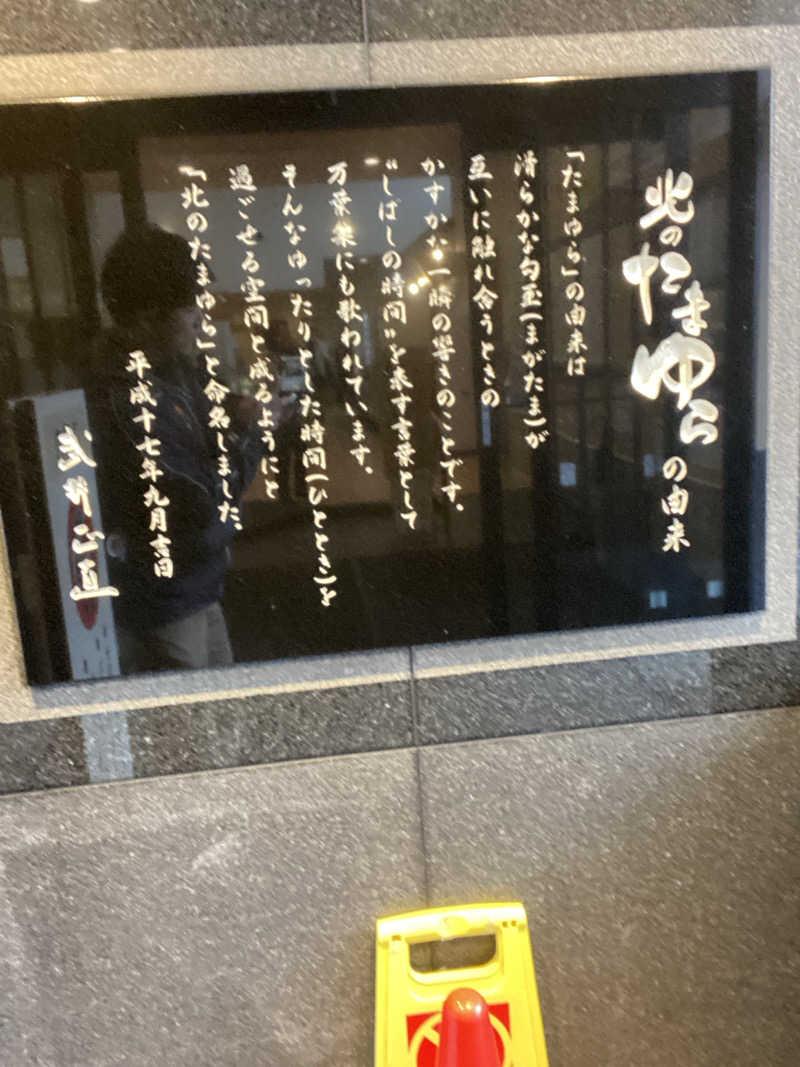 北のたまゆらの由来
「たまゆら」の由来は
滑らかな勾玉(まがたま)が
互いに触れ合うときの
かすかな一瞬の響きのことです。
“しばしの時間”を表す言葉として
万葉集にも歌われています。
そんなゆったりとした時間(ひととき)を
過ごせる空間と成るようにと
「北のたまゆら」と命名しました。
平成十七年九月吉日